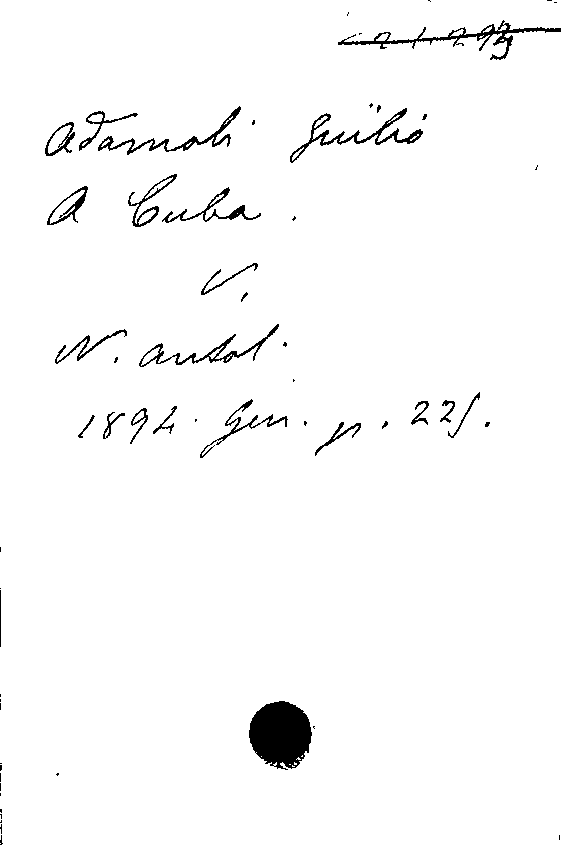 Adamoli Giulio
A Cuba.
V.
N. antol.
1894. Gen. p. 225.